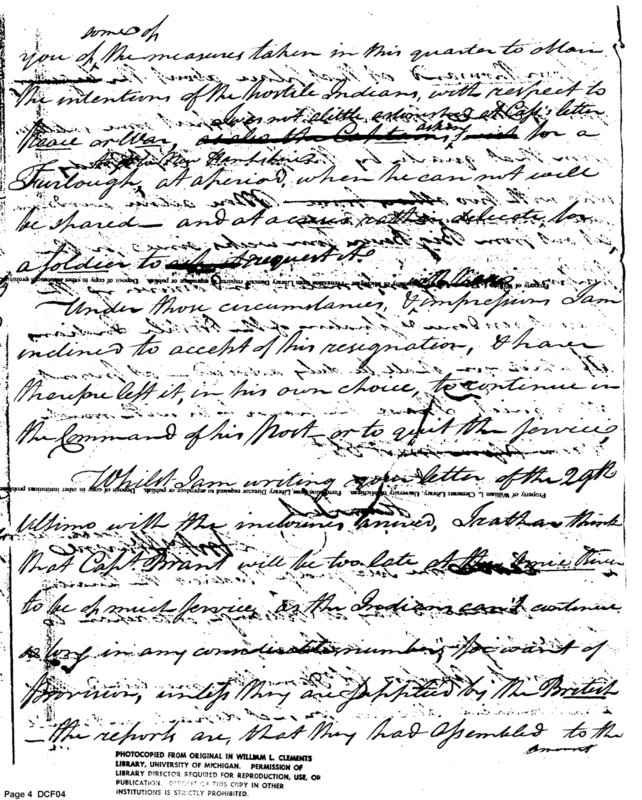 some of
you of the measures taken in this quarter to obtain
the intentions of the hostile Indians, with respect to
was not a little astonished at Capt letter
Peace or War, asking for a
Furlough, at a period, when he can not well
be spared — and at a rather delicate for
a soldier to request it
Under those circumstances, & impressions I am
inclined to accept of his resignation, & have
therefore left it, in his own choice, to continue in
the Command of his Post or to quit the service,
Whilst I am writing your letter of the 29th
Ultimo with the inclosures arrived, I rather think
that Capt Brant will be too late at
to be of much service, as the Indians can't continue
long in any considerable numbers, for want of
Provision, unless they are supplied by the British
— the reports are, that they had assembled to the
amount
Property of William L. Clements Library, University of Michigan. Permission from Library Director required to reproduce or publish. Deposit of copy in other institutions prohibited
PHOTOCOPIED FROM ORIGINAL IN WILLIAM L. CLEMENTS
LIBRARY, UNIVERSITY OF MICHIGAN. PERMISSION OF
LIBRARY DIRECTOR REQUIRED FOR REPRODUCTION, USE, OR
PUBLICATION. DEPOSIT OF THIS COPY IN OTHER
INSTITUTIONS IS STRICTLY PROHIBITED.
Page 4 DCF04